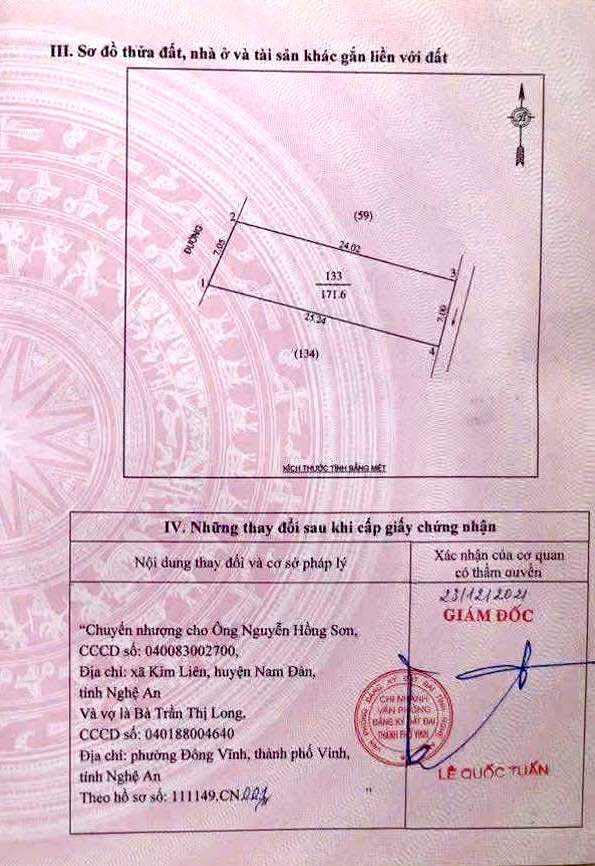 III. Sơ đồ thửa đất, nhà ở và tài sản khác gắn liền với đất
B
(59)
2
ĐƯỜNG
7.05
24.02
3
133
171.6
1
7.00
25.24
4
(134)
KÍCH THƯỚC TÍNH BẰNG MÉT
IV. Những thay đổi sau khi cấp giấy chứng nhận
Nội dung thay đổi và cơ sở pháp lý
Xác nhận của cơ quan
có thẩm quyền
23/12/2021
GIÁM ĐỐC
"Chuyển nhượng cho Ông Nguyễn Hồng Sơn,
CCCD số: 040083002700,
Địa chỉ: xã Kim Liên, huyện Nam Đàn,
tỉnh Nghệ An
Và vợ là Bà Trần Thị Long,
CCCD số: 040188004640
Địa chỉ: phường Đông Vĩnh, thành phố Vinh,
tỉnh Nghệ An
Theo hồ sơ số: 111149.CN. "
CHI NHÁNH
VĂN PHÒNG
ĐĂNG KÝ ĐẤT ĐAI
THÀNH PHỐ VINH
LÊ QUỐC TUẤN